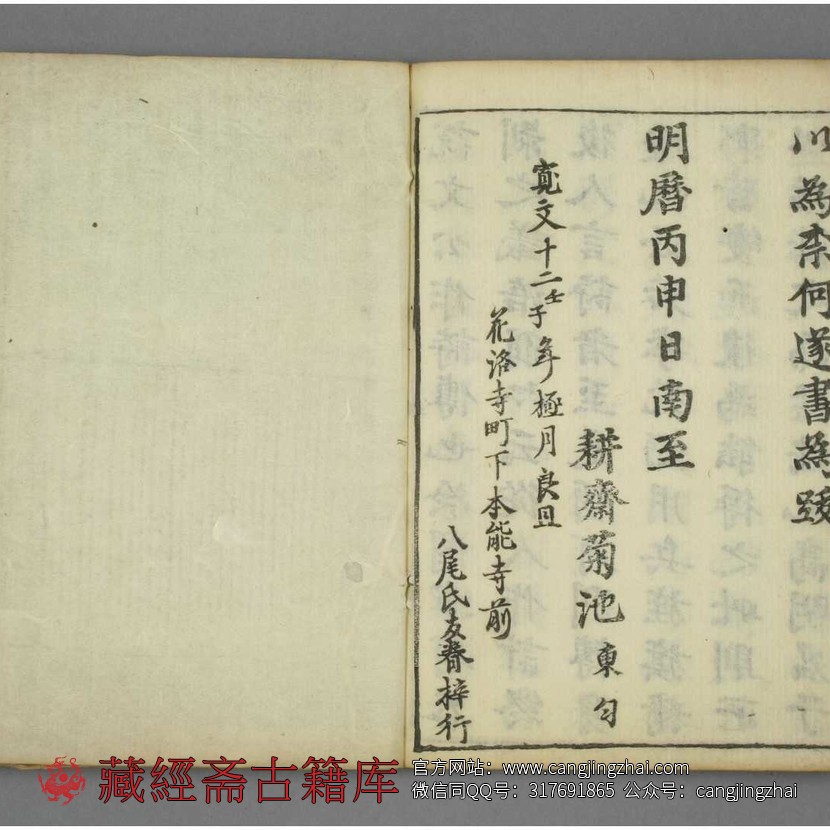 川為柰何遂書為跋
明曆丙申日南至
耕齋菊池東匀
寬文十二壬子年極月良旦
花洛寺町下本能寺前
八尾氏友春梓行
藏經斋古籍库
官方网站：www.cangjingzhai.com
微信同QQ号：317691865 公众号：cangjingzhai